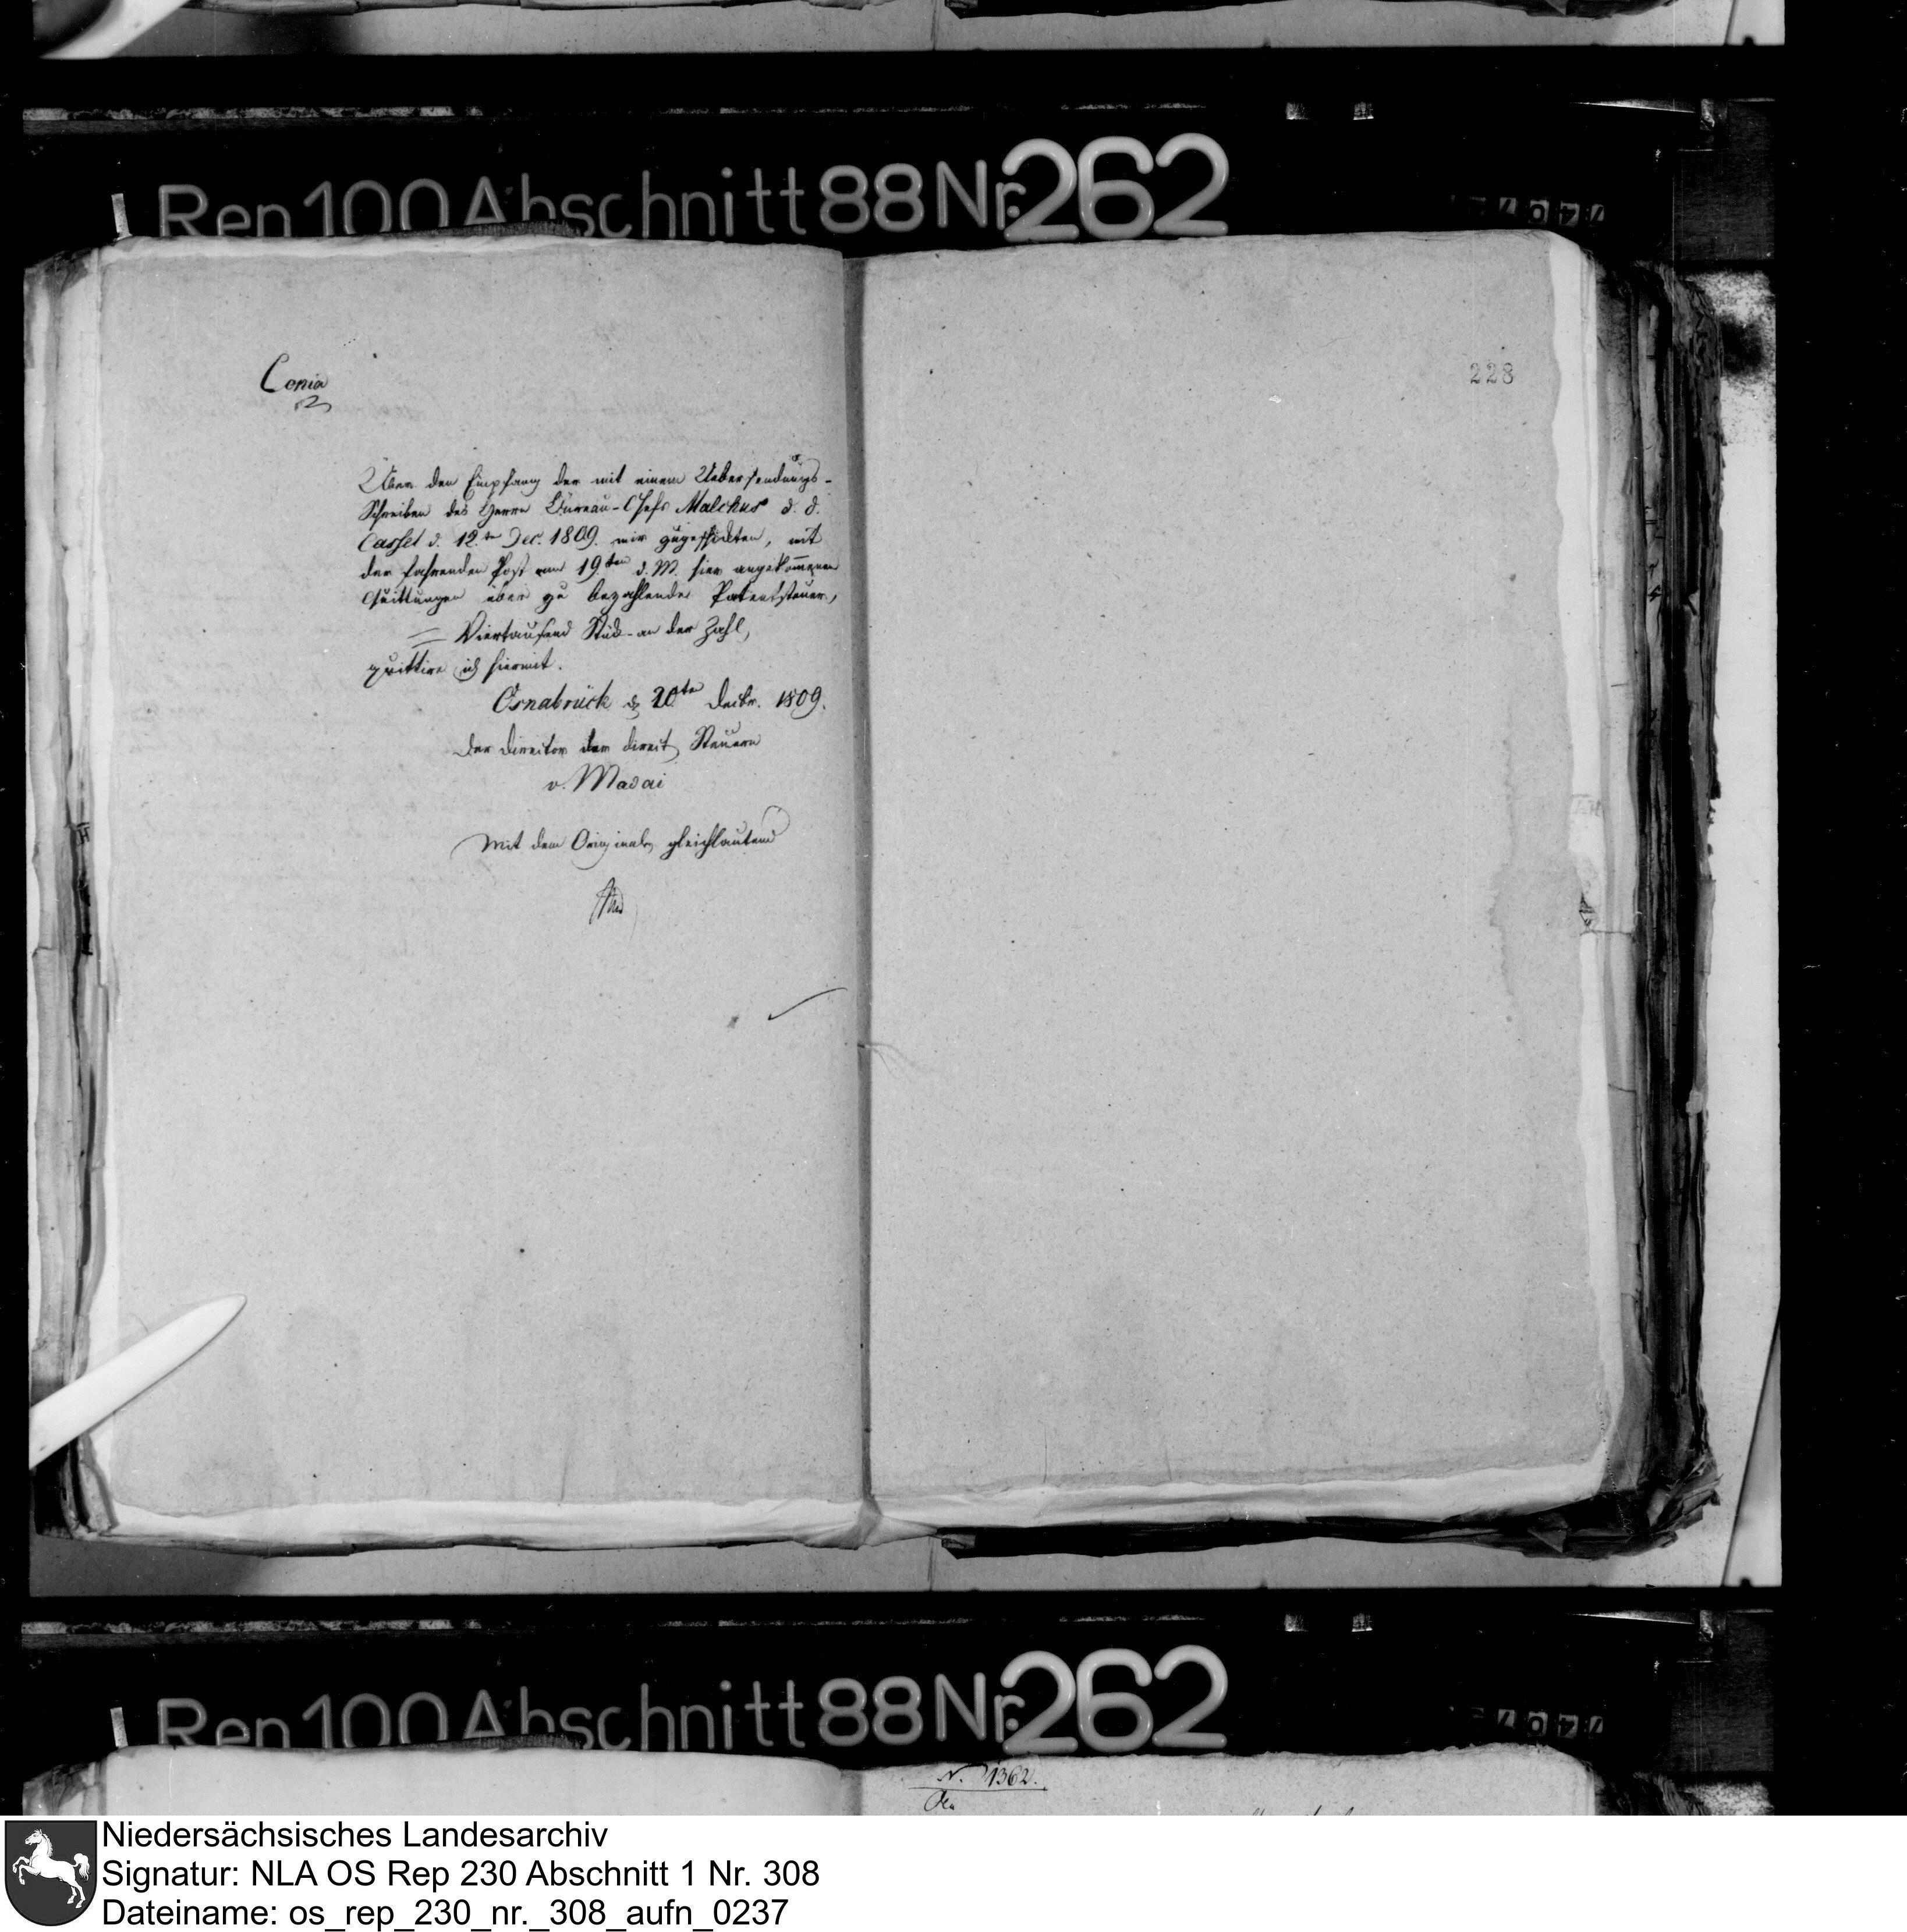 Rep 100 Abschnitt 88 Nr. 262
Copia
Über den Empfang der mit einem Uebersendungs-
Schreiben des Herrn Büreau-Chefs Malchus d. d.
Cassel d. 12.ten Dec. 1809. mir zugeschickten, mit
der fahrenden Post am 19.ten d. M. hier angekom̄enen
Quittungen über zu bezahlende Patentsteuer,
= Viertausend Stück an der Zahl,
quittire ich hiermit.
Osnabrück d. 20.ten Decbr. 1809.
Der Director der direct. Steuern
v. Madai
Mit dem Originale gleichlautend
228
Rep 100 Abschnitt 88 Nr. 262
N. 1362.
Niedersächsisches Landesarchiv
Signatur: NLA OS Rep 230 Abschnitt 1 Nr. 308
Dateiname: os_rep_230_nr._308_aufn_0237